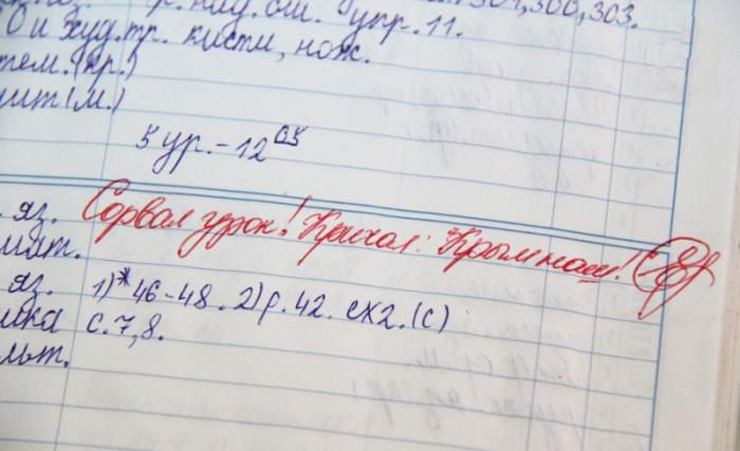 р. над. ош. упр. 11. 301, 300, 303.
О и худ. тр. кисти, нож.
тем. (кр.)
5 ур. - 12 05
яз. Сорвал урок! Кричал: Крым наш!
мат.
яз. 1)* 46-48. 2) р. 42. сх 2. (с)
с. 7, 8.
льт.